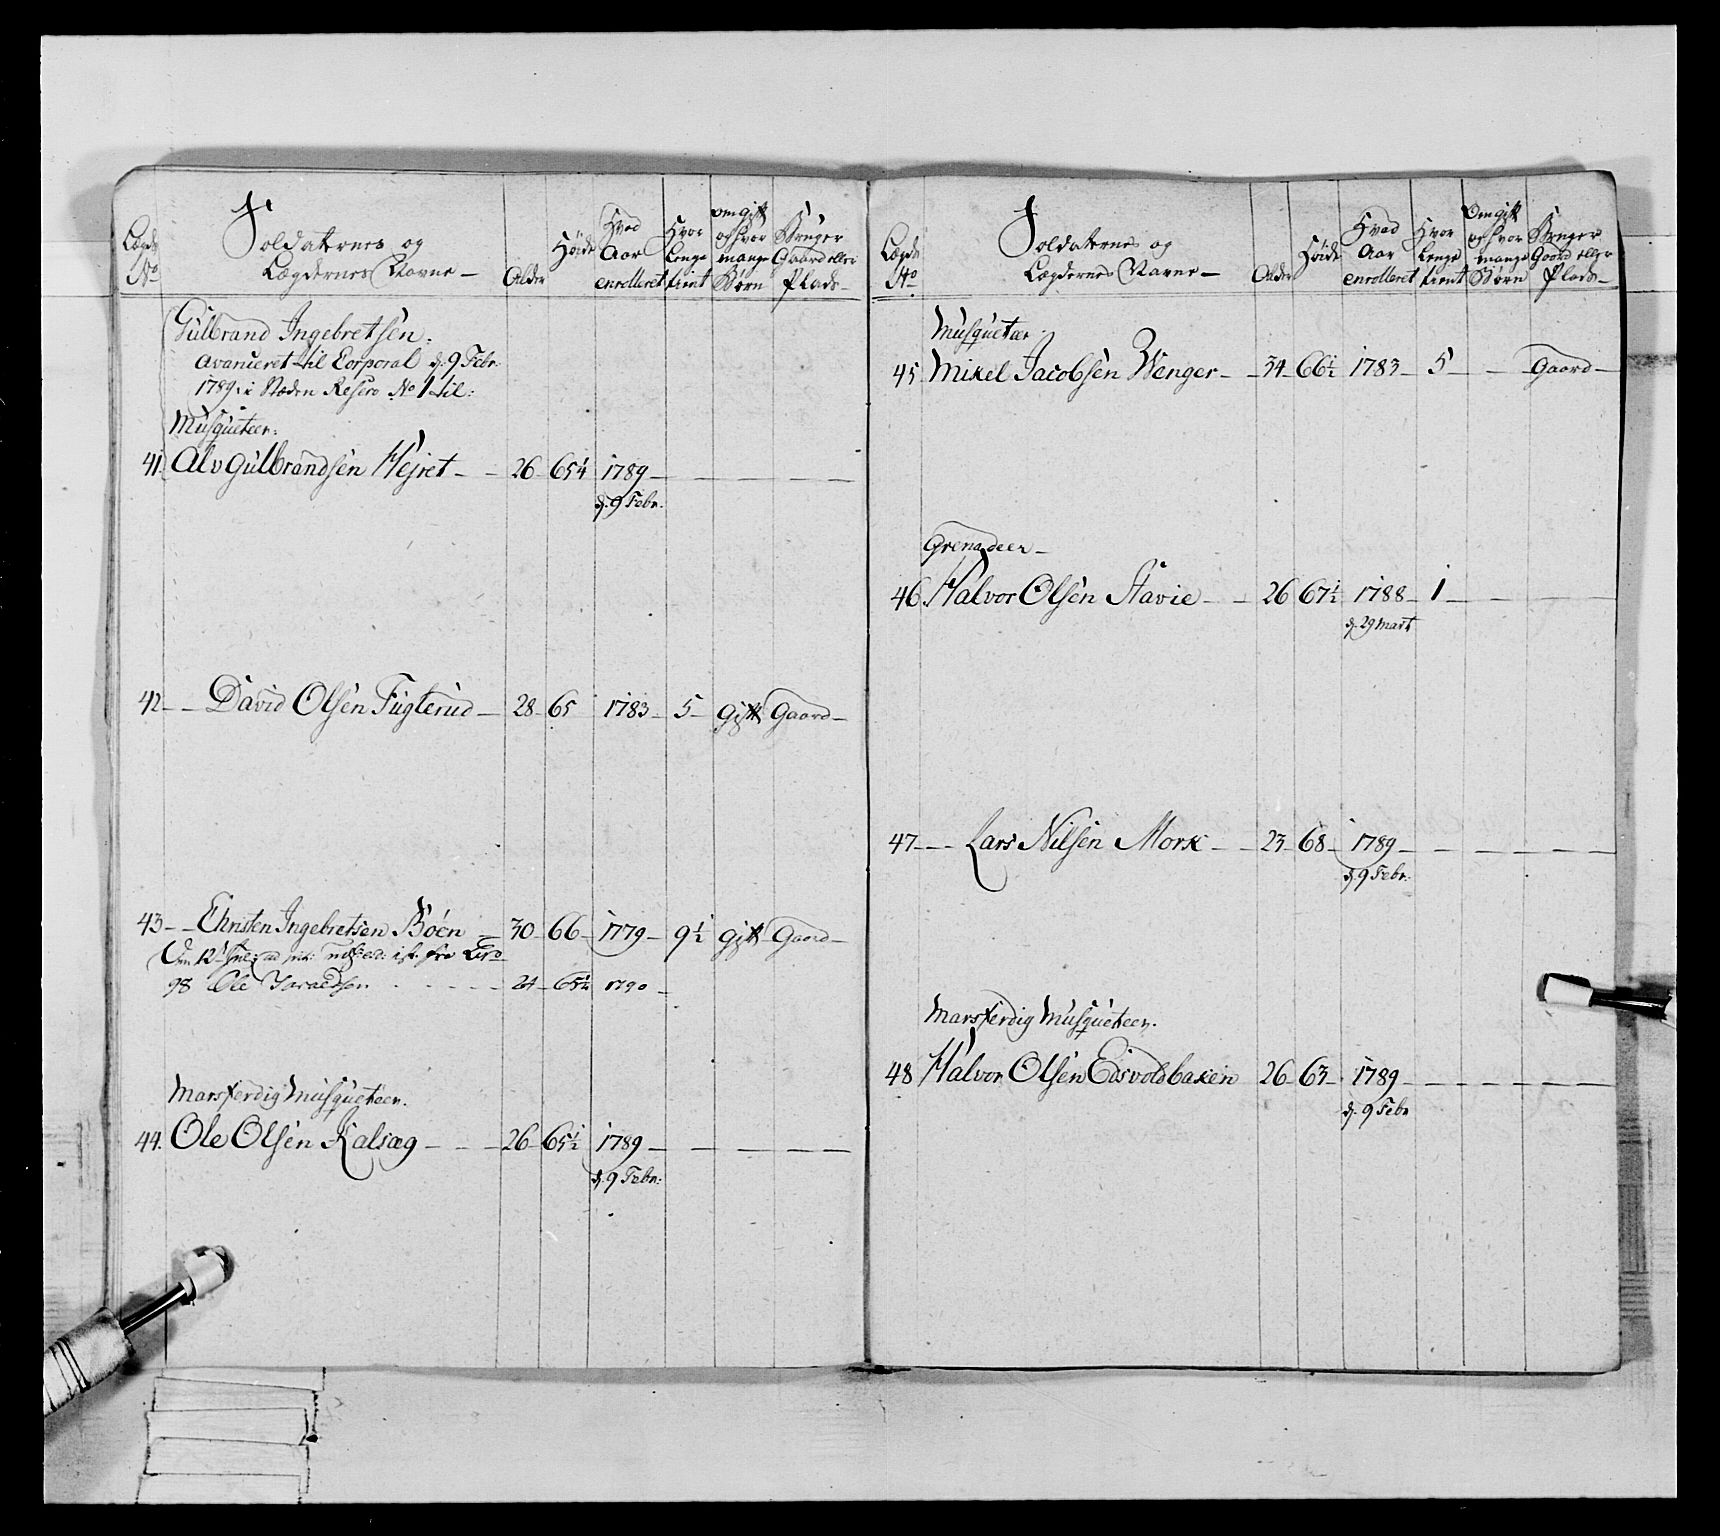 Lægds No
Soldaternes og Lægdernes Navne
Alder
Höide
Hvad Aar enrolleret
Hvor Lenge tient
Om gift og hvor mange Børn
Bruger Gaard eller Plads
Gulbrand Ingebretsen.
avanceret til Corporal d. 9 Febr:
1789. i Steden Reserv No 1 til:
Musqueteer:
41. Alv Gulbrandsen Hejret 26 65¼ 1789
d. 9 Febr.
42 David Olsen Fugterud 28 65 1783 5 Gift Gaard
43 Christen Ingebretsen Böen 30 66 1779 9½ gift Gaard
98 Ole 24 65½ 1790
Marsferdig Musqueteer.
44. Ole Olsen Kalsæg 26 65½ 1789
d. 9 Febr:
Lægds No
Soldaternes og Lægdernes Navne
Alder
Höide
Hvad Aar enrolleret
Hvor Lenge tient
Om gift og hvor mange Børn
Bruger Gaard eller Plads
Musquetær
45. Mikel Jacobsen Wenger 34 66½ 1783 5 Gaard
Grenadeer
46. Halvor Olsen Stavie 26 67½ 1788 1
d. 29 Mart
47 Lars Nilsen Mork 23 68 1789
d. 9 Febr.
Marsferdig Musqueteer.
48 Halvor Olsen Eidsvoldbaken 26 63 1789
d. 9 Febr